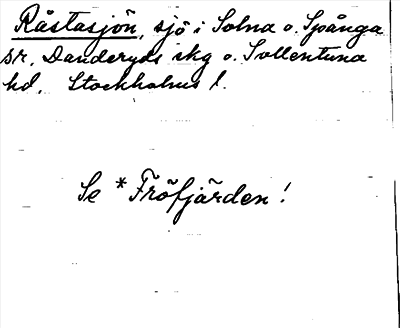 Råstasjön, sjö i Solna o. Spånga
sr, Danderyds skg o. Sollentuna
hd, Stockholms l.
Se *Fröfjärden!